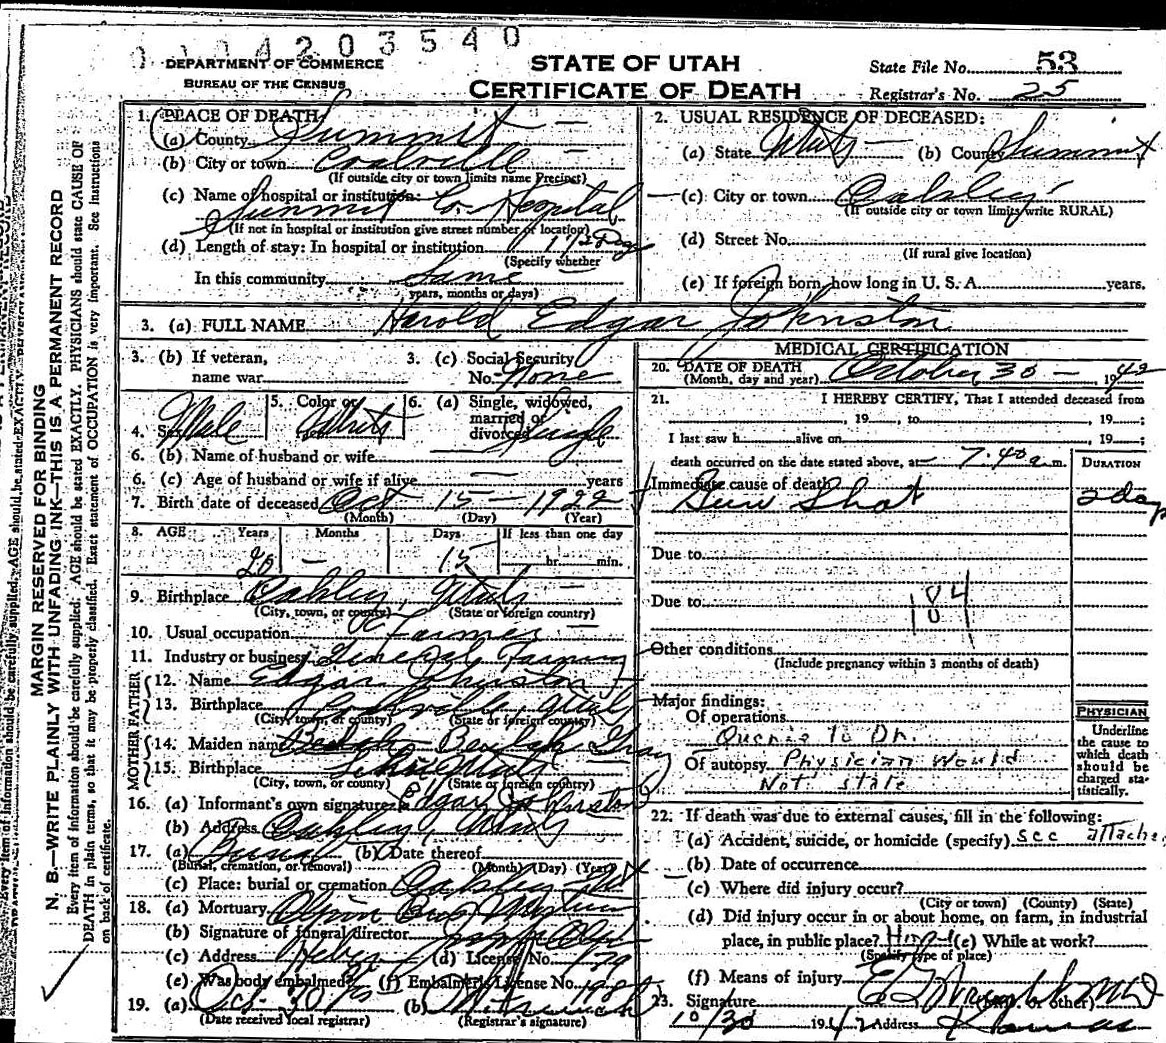 0004203540
DEPARTMENT OF COMMERCE
BUREAU OF THE CENSUS
STATE OF UTAH
CERTIFICATE OF DEATH
State File No. 53
Registrar's No. 25
MARGIN RESERVED FOR BINDING
N. B.—WRITE PLAINLY WITH UNFADING INK—THIS IS A PERMANENT RECORD
Every item of information should be carefully supplied. AGE should be stated EXACTLY. PHYSICIANS should state CAUSE OF
DEATH in plain terms, so that it may be properly classified. Exact statement of OCCUPATION is very important. See instructions
on back of certificate.
1. PLACE OF DEATH:
(a) County Summit
(b) City or town Coalville
(If outside city or town limits name Precinct)
(c) Name of hospital or institution:
Summit Co. Hospital
(If not in hospital or institution give street number or location)
(d) Length of stay: In hospital or institution 1 1/2 Days
(Specify whether
In this community Same
years, months or days)
2. USUAL RESIDENCE OF DECEASED:
(a) State Utah (b) County Summit
(c) City or town Oakley
(If outside city or town limits write RURAL)
(d) Street No.
(If rural give location)
(e) If foreign born, how long in U. S. A. years.
3. (a) FULL NAME Harold Edgar Johnston
3. (b) If veteran,
name war
3. (c) Social Security
No. None
4. Sex Male
5. Color or
race White
6. (a) Single, widowed,
married or
divorced Single
6. (b) Name of husband or wife
6. (c) Age of husband or wife if alive years
7. Birth date of deceased Oct 15 1922
(Month) (Day) (Year)
8. AGE Years Months Days If less than one day
20 - 15 hr. min.
9. Birthplace Oakley, Utah
(City, town, or county) (State or foreign country)
10. Usual occupation Farmer
11. Industry or business General Farming
FATHER
12. Name Edgar Johnston
13. Birthplace Coalville, Utah
(City, town, or county) (State or foreign country)
MOTHER
14. Maiden name Beulah Gray
15. Birthplace Utah
(City, town, or county) (State or foreign country)
16. (a) Informant's own signature Edgar Johnston
(b) Address Oakley, Utah
17. (a) Burial (b) Date thereof
(Burial, cremation, or removal) (Month) (Day) (Year)
(c) Place: burial or cremation Oakley
18. (a) Mortuary Olpin Bros
(b) Signature of funeral director
(c) Address Heber (d) License No. 179
(e) Was body embalmed? (f) Embalmer's License No.
19. (a) Oct. 30 (b)
(Date received local registrar) (Registrar's signature)
MEDICAL CERTIFICATION
20. DATE OF DEATH
(Month, day and year) October 30 - 1942
21. I HEREBY CERTIFY, That I attended deceased from
, 19 , to , 19 ;
I last saw h alive on , 19 ;
death occurred on the date stated above, at 7:40 a.m.
DURATION
Immediate cause of death
Gun Shot 2 days
Due to
Due to
184
Other conditions
(Include pregnancy within 3 months of death)
Major findings:
Of operations
Querie to Dr.
Of autopsy Physician Would
Not state
PHYSICIAN
Underline
the cause to
which death
should be
charged sta-
tistically.
22. If death was due to external causes, fill in the following:
(a) Accident, suicide, or homicide (specify) see attached
(b) Date of occurrence
(c) Where did injury occur?
(City or town) (County) (State)
(d) Did injury occur in or about home, on farm, in industrial
place, in public place? (e) While at work?
(Specify type of place)
(f) Means of injury
23. Signature (M.D. or other) M D
10/30 1942 Address Kamas